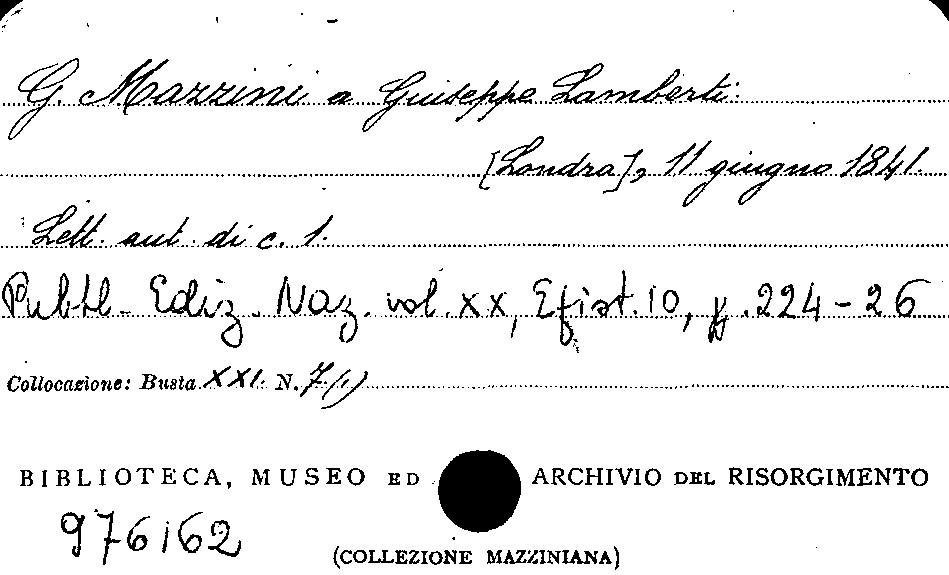 G. Mazzini a Giuseppe Lamberti.
[Londra], 11 giugno 1841.
Lett. aut. di c. 1.
Pubbl. Ediz. Naz. vol. XX, Epist. 10, p. 224-26
Collocazione: Busta XXI. N. 7(1)
BIBLIOTECA, MUSEO ED ARCHIVIO DEL RISORGIMENTO
976162
(COLLEZIONE MAZZINIANA)